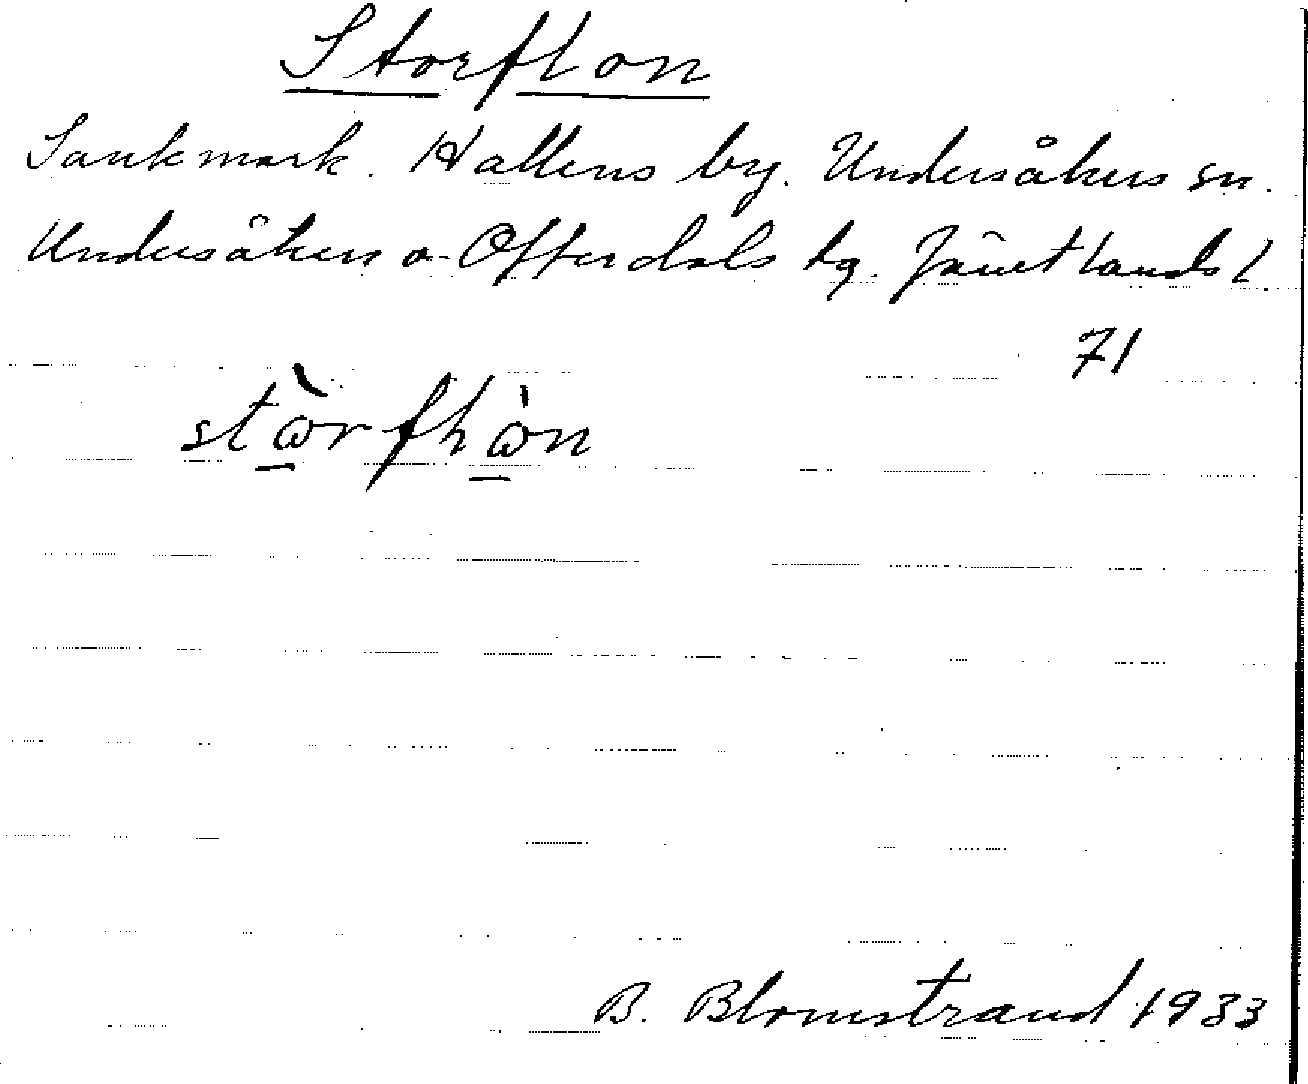 Storflon
Sankmark. Hallens by. Undersåkers sn.
Undersåkers o. Offerdals tg. Jämtlands l.
71
stὼ̲rfłὼ̲n
B. Blomstrand 1933